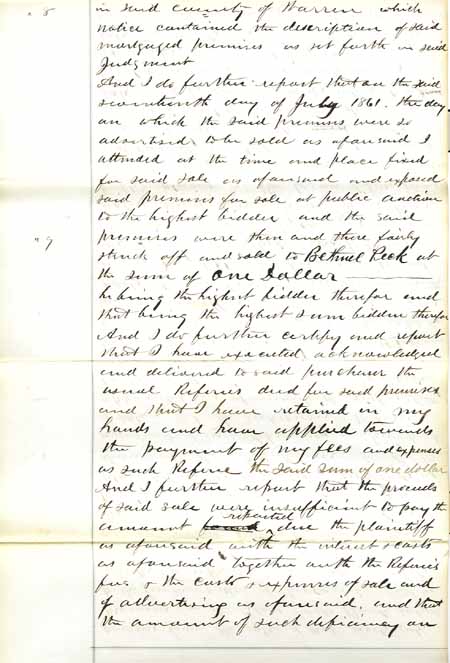 " 8
in said county of Warren which
notice contained the description of said
mortgaged premises as set forth in said
Judgment
And I do further report that on the said
seventeenth day of July 1861. the day
on which the said premises were so
advertised to be sold as aforesaid I
attended at the time and place fixed
for said sale as aforesaid and exposed
said premises for sale at public auction
to the highest bidder and the said
" 9
premises were then and there fairly
struck off and sold to Bethuel Peck at
the sum of One Dollar
he being the highest bidder therefor and
that being the highest sum bidden therefor
And I do further certify and report
that I have executed acknowledged
and delivered to said purchaser the
usual Referees deed for said premises
and that I have retained in my
hands and have applied towards
the payment of my fees and expenses
as such Referee the said sum of one dollar
And I further report that the proceeds
of said sale were insufficient to pay the
reported
amount found due the plaintiff
as aforesaid with the interest & costs
as aforesaid together with the Referee's
fees & the costs & expenses of sale and
of advertising as aforesaid. and that
the amount of such deficiency on